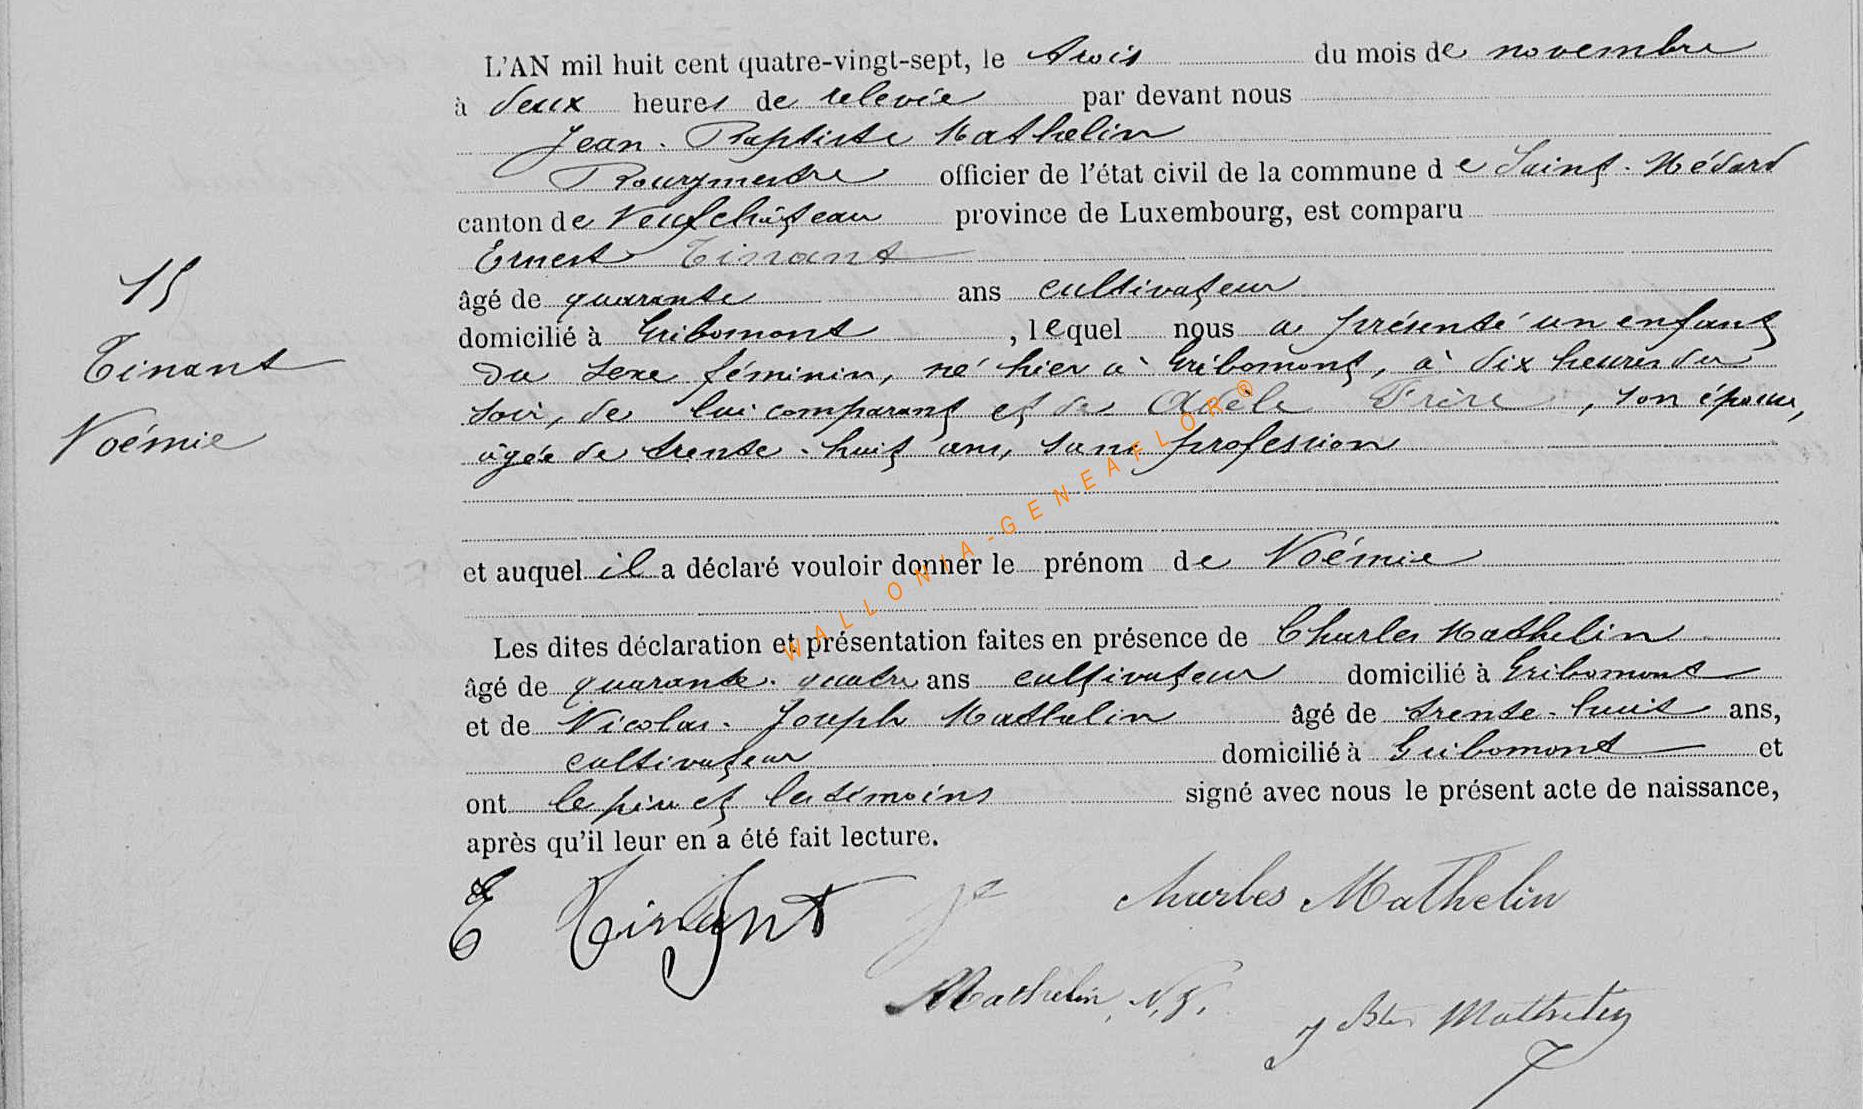 L'AN mil huit cent quatre-vingt-sept, le trois du mois de novembre
à deux heures de relevée par devant nous
Jean-Baptiste Mathelin
Bourgmestre officier de l'état civil de la commune de Saint-Médard
canton de Neufchâteau province de Luxembourg, est comparu
Ernest Tinant
âgé de quarante ans cultivateur
domicilié à Gribomont, lequel nous a présenté un enfant
du sexe féminin, né hier à Gribomont, à dix heures du
soir, de lui comparant et de Adèle Frère, son épouse,
âgée de trente-huit ans, sans profession
et auquel il a déclaré vouloir donner le prénom de Noémie
Les dites déclaration et présentation faites en présence de Charles Mathelin
âgé de quarante-quatre ans cultivateur domicilié à Gribomont
et de Nicolas-Joseph Mathelin âgé de trente-huit ans,
cultivateur domicilié à Gribomont et
ont le père et les témoins signé avec nous le présent acte de naissance,
après qu'il leur en a été fait lecture.
15
Tinant
Noémie
E Tinant
Charles Mathelin
Mathelin, N. J.
J Bte Mathelin
WALLONIA-GENEAFLOR®